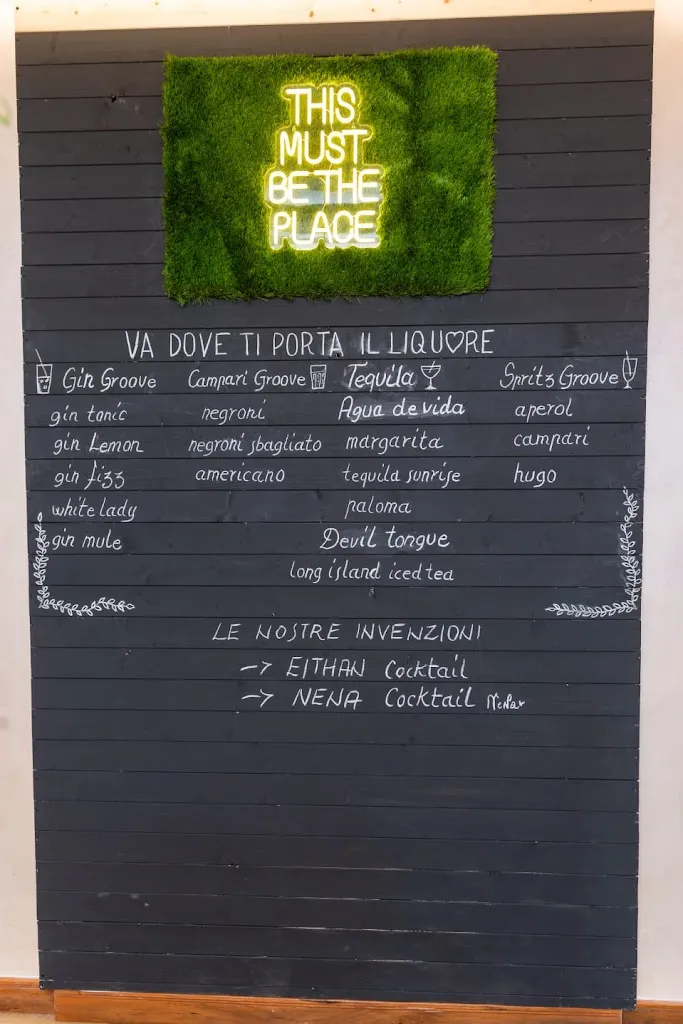 THIS
MUST
BE THE
PLACE
VA DOVE TI PORTA IL LIQUORE
Gin Groove Campari Groove Tequila Spritz Groove
gin tonic negroni Agua de vida aperol
gin Lemon negroni sbagliato margarita campari
gin fizz americano tequila sunrise hugo
white lady paloma
gin mule Devil tongue
long island iced tea
LE NOSTRE INVENZIONI
-> EITHAN Cocktail
-> NENA Cocktail Nena